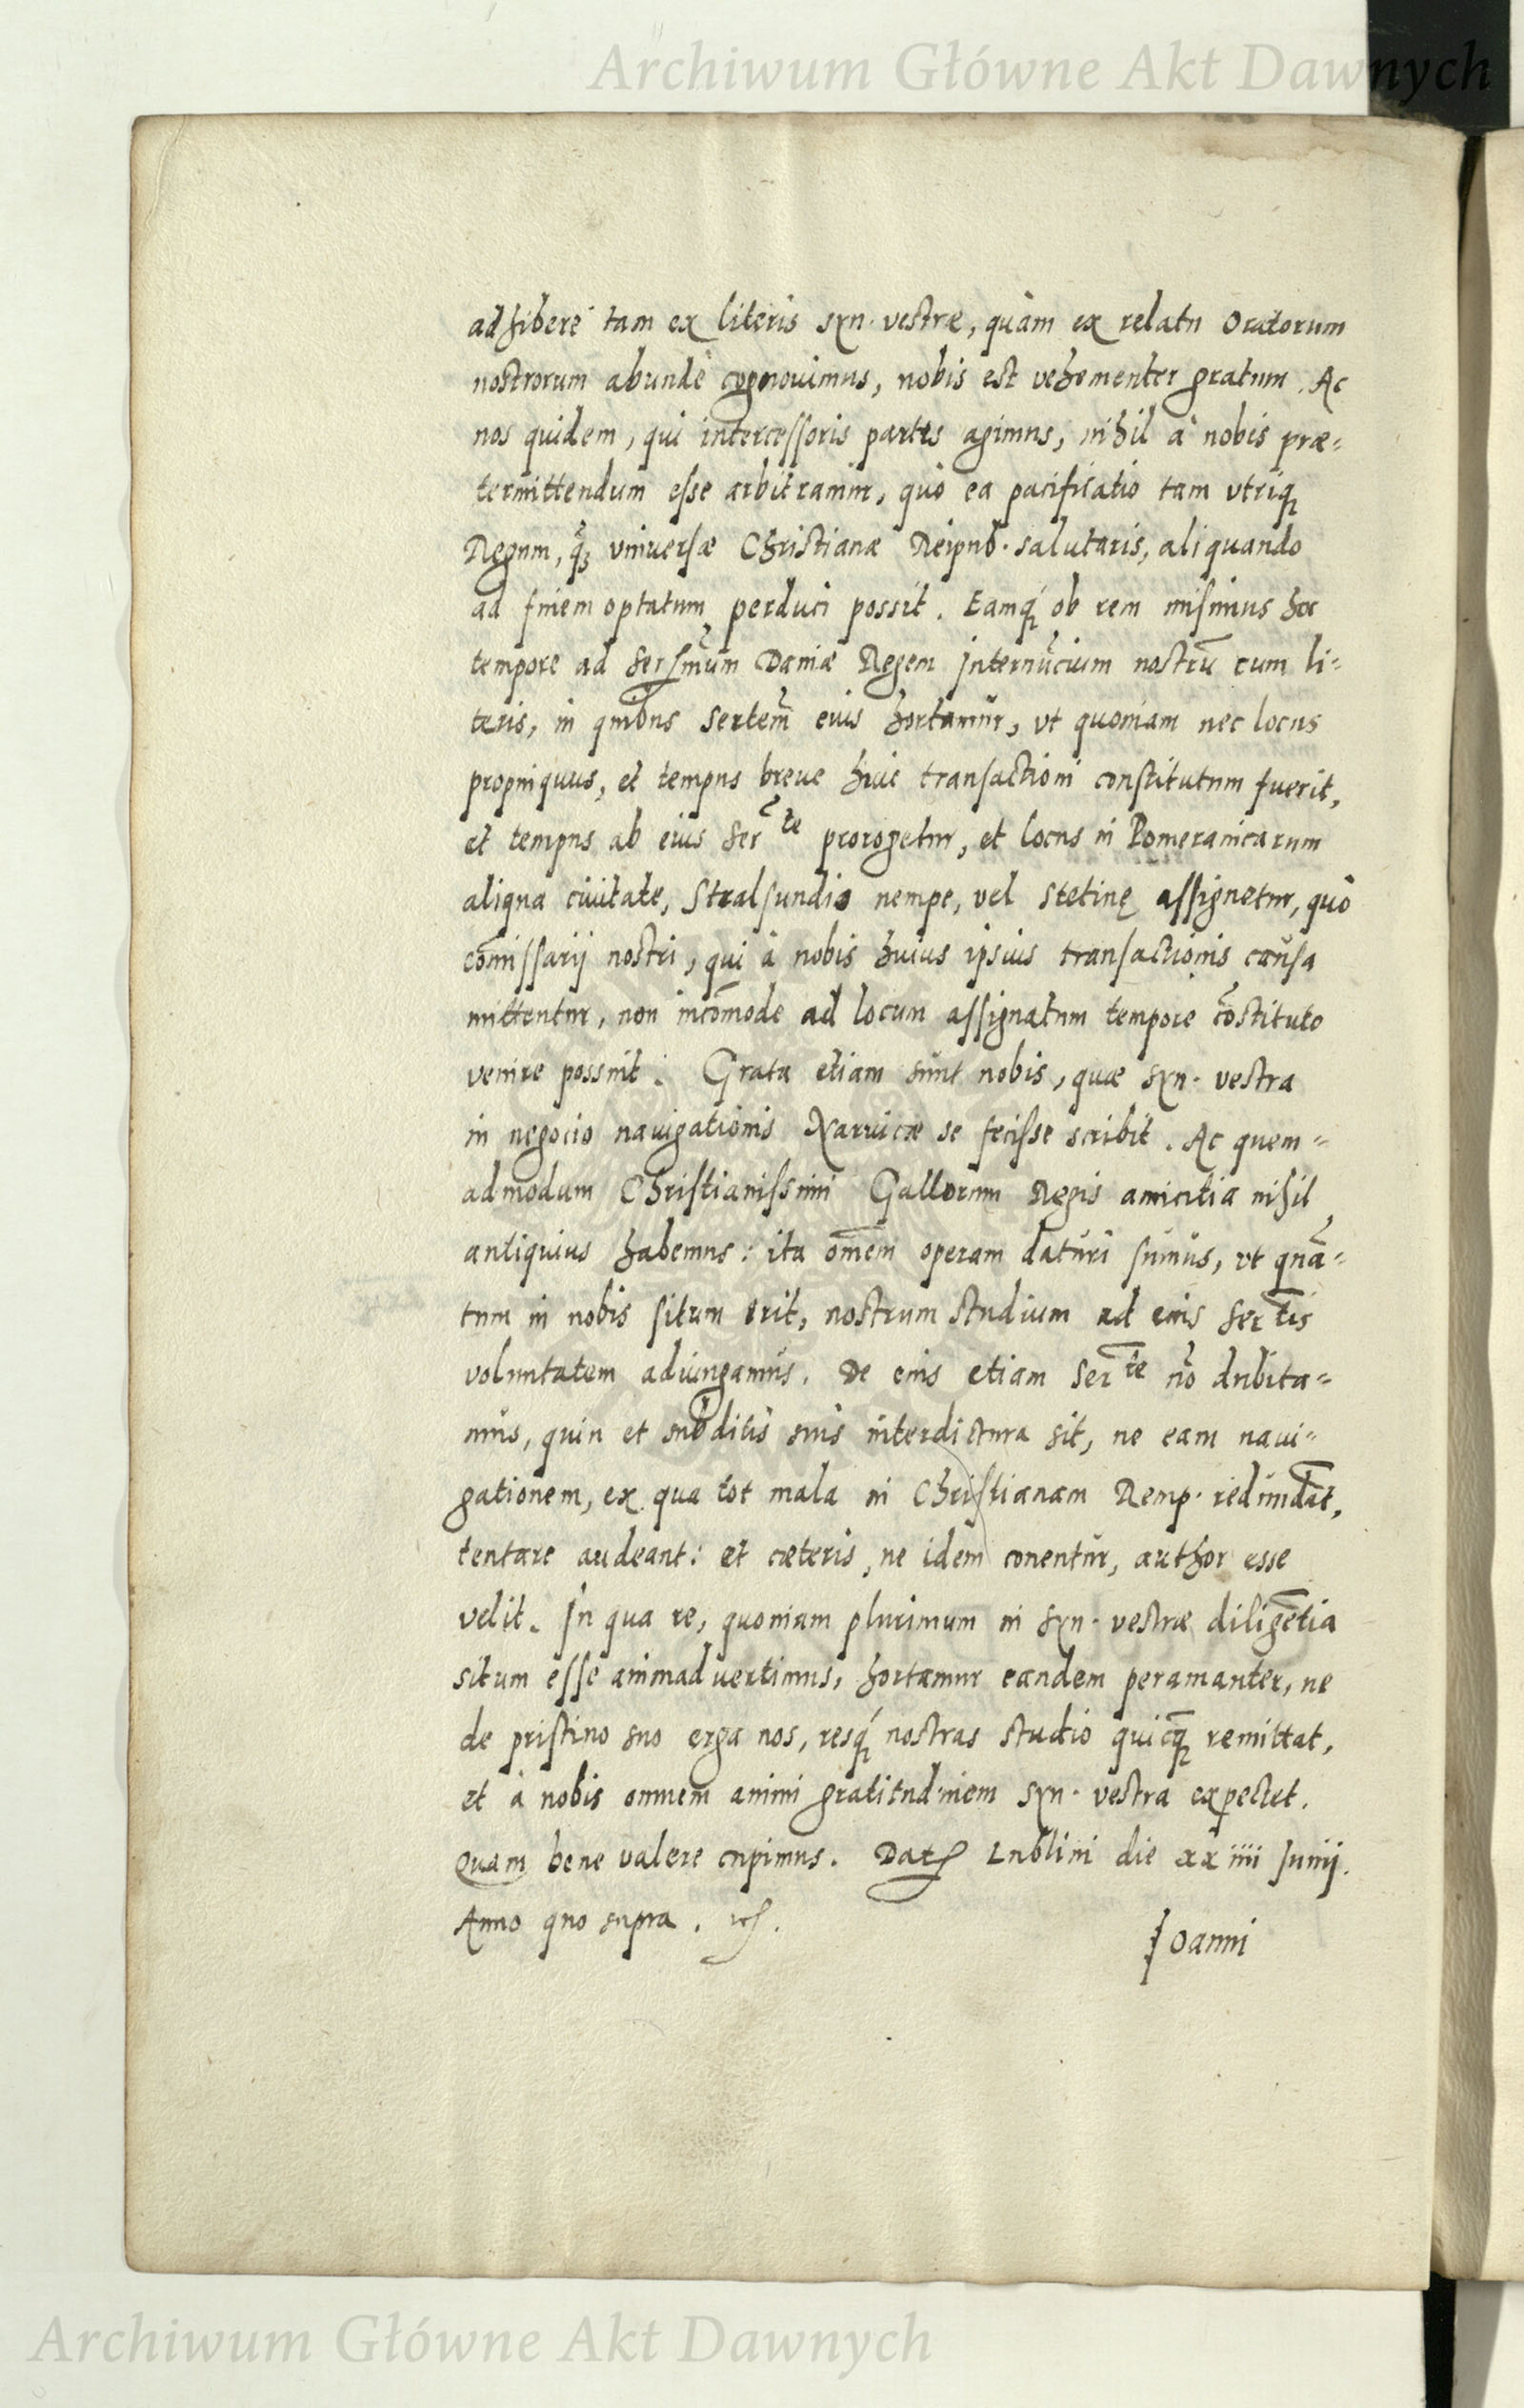 Archiwum Główne Akt Dawnych
adhibere tam ex literis syn. vestræ, quàm ex relatu Oratorum
nostrorum abundè cognouimus, nobis est vehementer gratum. Ac
nos quidem, qui intercessoris partes agimus, nihil à nobis præ=
termittendum esse arbitramur, quò ea pacificatio tam vtriq
Regum, q̃ȝ vniuersæ Christianæ Reipub. salutaris, aliquando
ad finem optatum perduci possit. Eamq́ ob rem misimus hoc
tempore ad Sersm̃um Daniæ Regem Internũcium nostrũ cum li=
teris, in quibus Sertem̃ eius hortamur, vt quoniam nec locus
propinquus, et tempus breue huic transactioni constitutum fuerit,
et tempus ab eius Ser̃te prorogetur, et locus in Pomeranicarum
aliqua ciuitate, Stralsundio nempe, vel Stetinę assignetur, quò
com̃issarij nostri, qui à nobis huius ipsius transactionis causa
mittentur, non incom̃ode ad locum assignatum tempore cõstituto
venire possint. Grata etiam sunt nobis, quæ syn. vestra
in negocio nauigationis Naruicæ se fecisse scribit. Ac quem=
admodum Christianissimi Gallorum Regis amicitia nihil
antiquius habemus: ita om̃em operam daturi sumus, vt quã=
tum in nobis situm erit, nostrum studium ad eius Ser̃tis
voluntatem adiungamus. De eius etiam Ser̃te nõ dubita=
mus, quin et subditis suis interdictura sit, ne eam naui=
gationem, ex qua tot mala in Christianam Remp. redundãt,
tentare audeant: et cæteris, ne idem conentur, author esse
velit. In qua re, quoniam plurimum in syn. vestræ diligẽtia
situm esse animaduertimus, hortamur eandem peramanter, ne
de pristino suo erga nos, resq́ nostras studio quicq̃ remittat,
et à nobis omnem animi gratitudinem syn. vestra expectet.
Quam bene valere cupimus. Datꝭ Lublini die xxiiii Junij.
Anno quo supra.
Joanni
Archiwum Główne Akt Dawnych